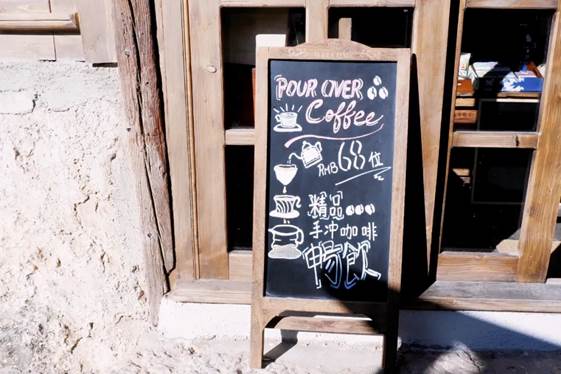 POUR OVER
Coffee
RMB68位
精品
手冲咖啡
畅飲